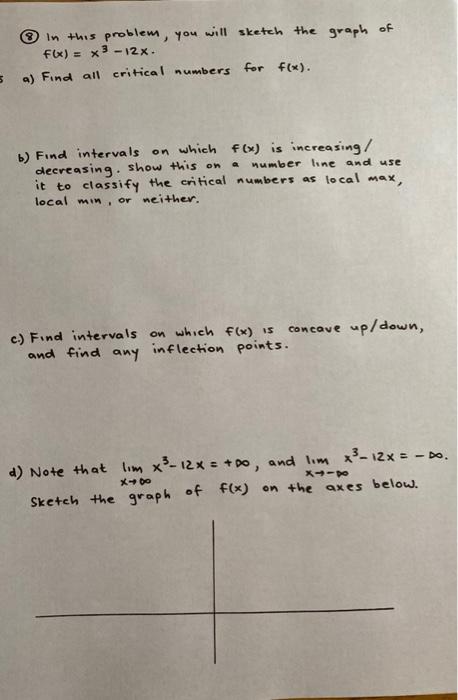 ⑧ In this problem, you will sketch the graph of
f(x) = x³ - 12x.
a) Find all critical numbers for f(x).
b) Find intervals on which f(x) is increasing/
decreasing. Show this on a number line and use
it to classify the critical numbers as local max,
local min, or neither.
c) Find intervals on which f(x) is concave up/down,
and find any inflection points.
d) Note that lim x→∞ x³-12x = +∞, and lim x→-∞ x³-12x = -∞.
Sketch the graph of f(x) on the axes below.